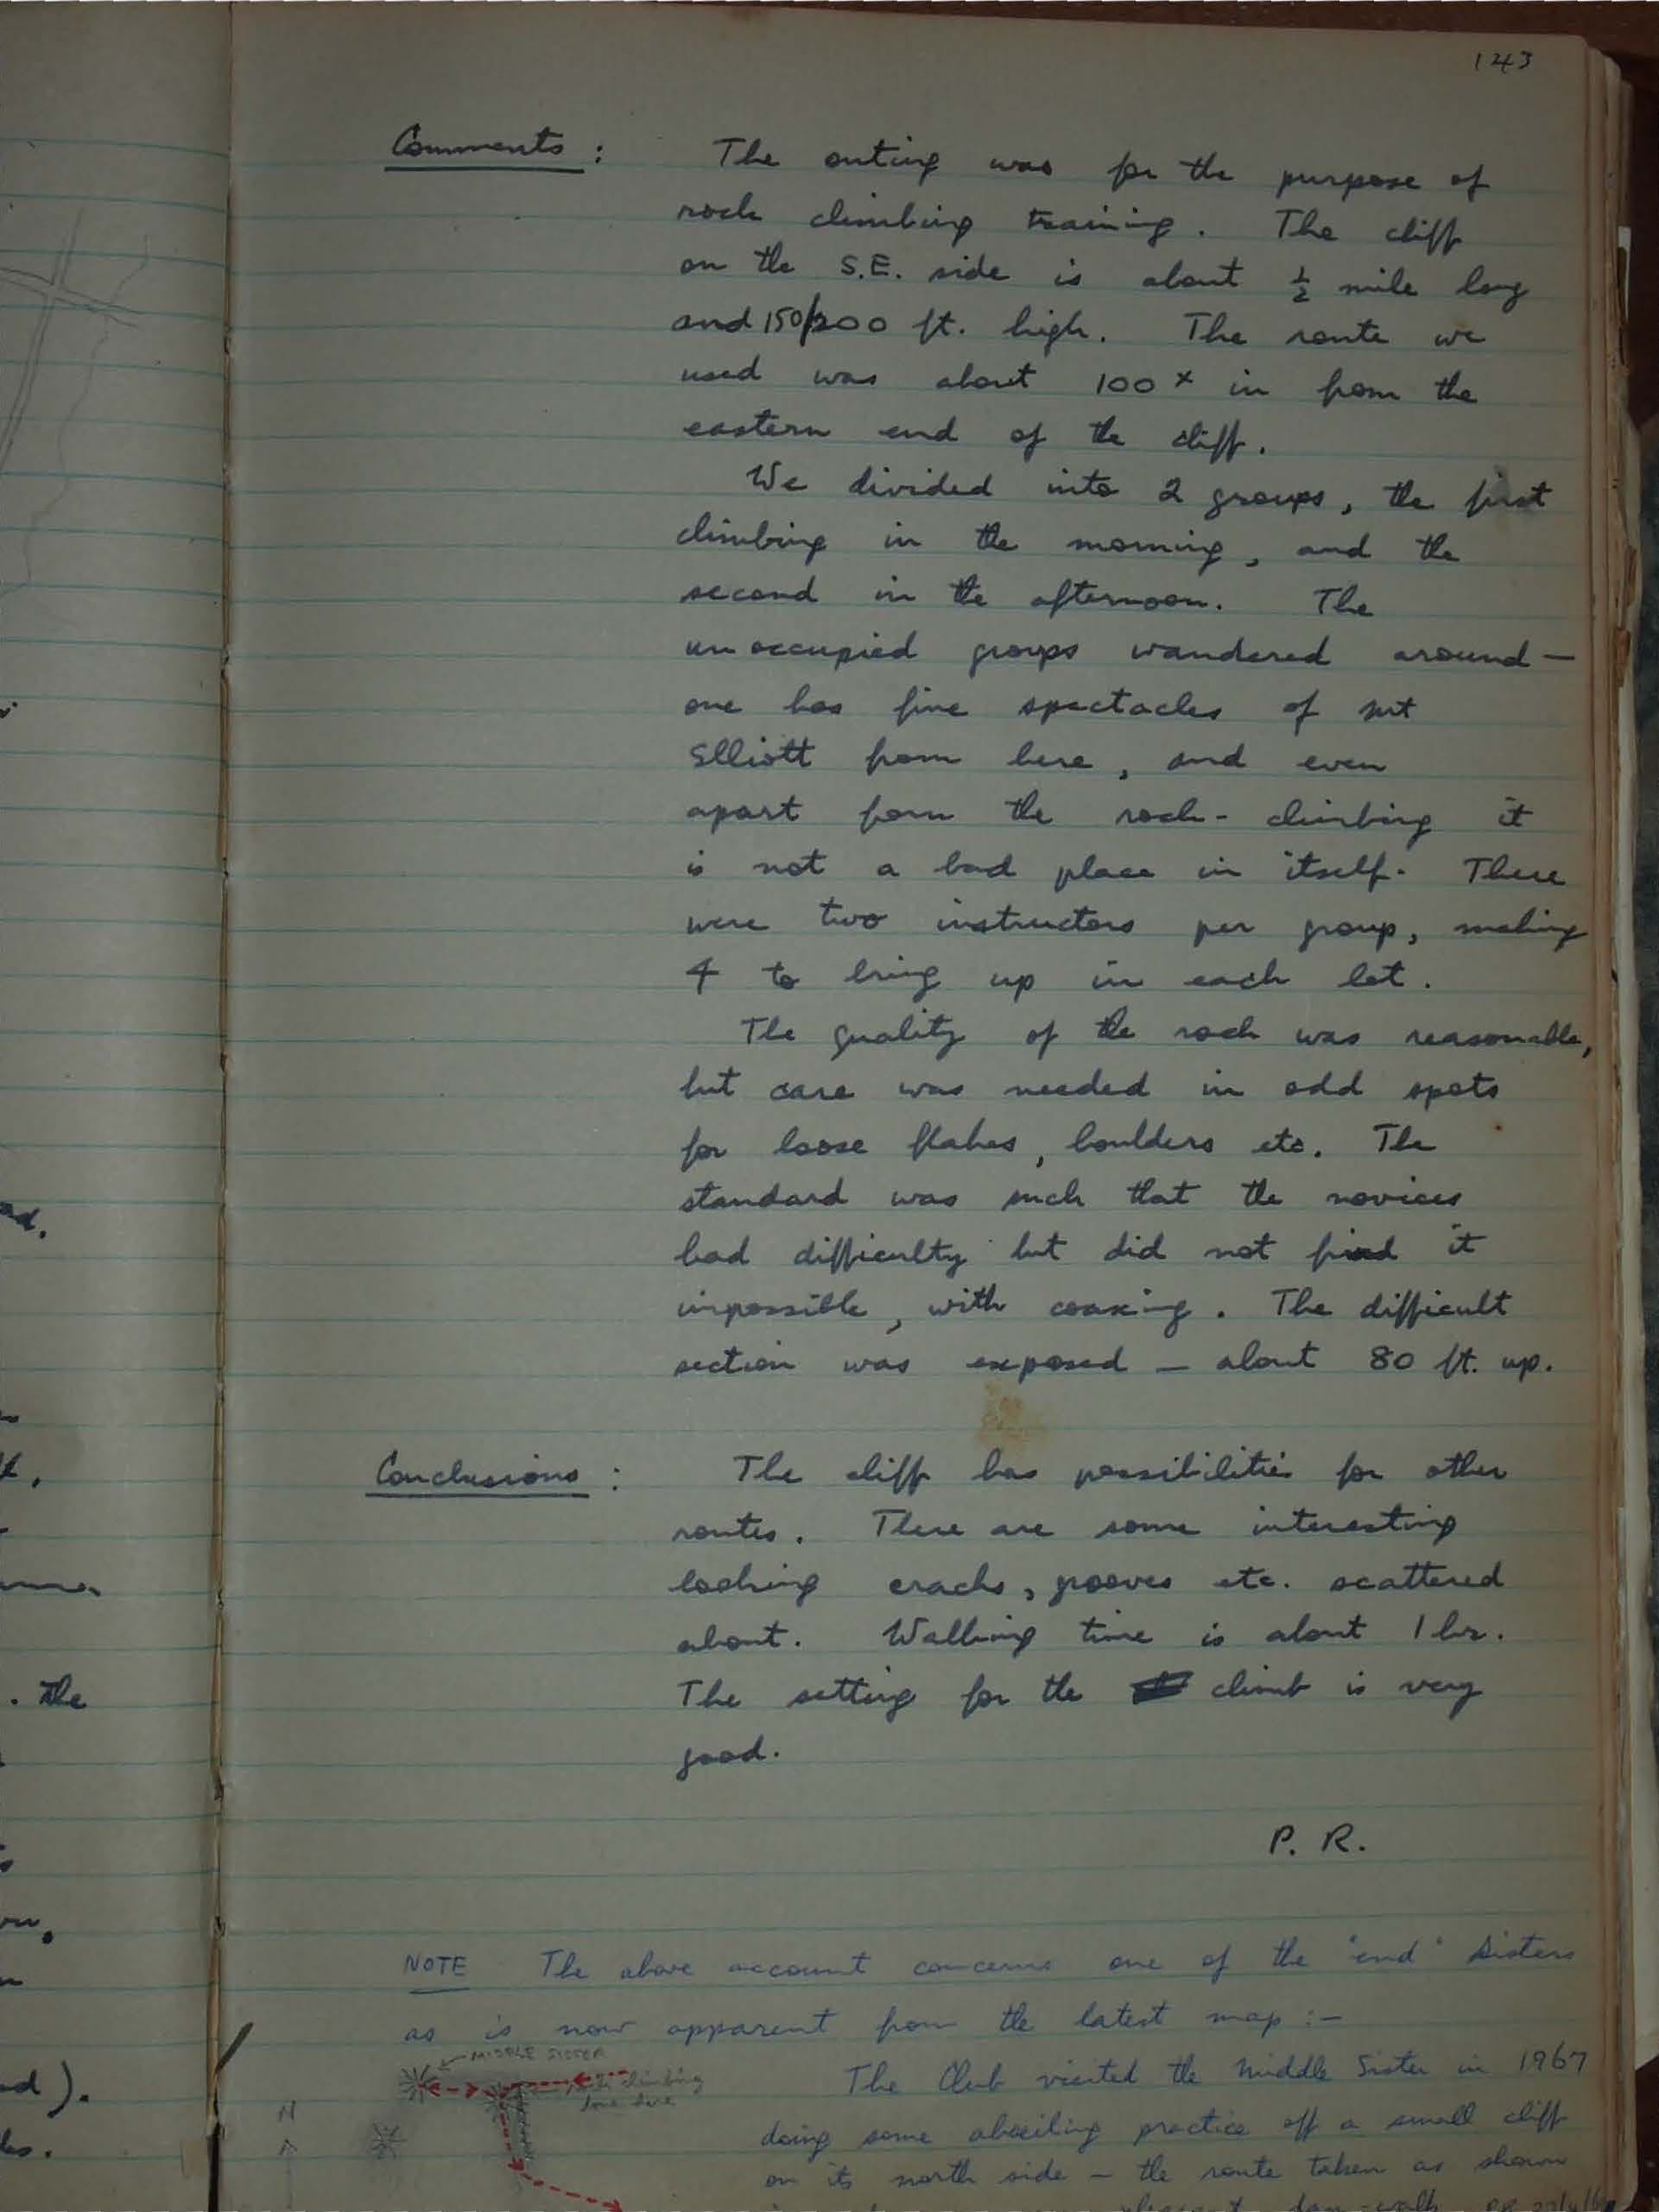 123
Comments : The outing was for the purpose of
rock climbing training. The cliff
on the S.E. side is about ½ mile long
and 150/200 ft. high. The route we
used was about 100 x in from the
eastern end of the cliff.
We divided into 2 groups, the first
climbing in the morning, and the
second in the afternoon. The
unoccupied groups wandered around —
one has fine spectacles of Mt
Elliott from here, and even
apart from the rock-climbing it
is not a bad place in itself. There
were two instructors per group, making
4 to bring up in each lot.
The quality of the rock was reasonable,
but care was needed in odd spots
for loose flakes, boulders etc. The
standard was such that the novices
had difficulty but did not find it
impossible, with coaxing. The difficult
section was exposed — about 80 ft. up.
Conclusions : The cliff has possibilities for other
routes. There are some interesting
looking cracks, grooves etc. scattered
about. Walking time is about 1 hr.
The setting for the climb is very
good.
P. R.
NOTE The above account concerns one of the 'end' Sisters
as is now apparent from the latest map :-
MIDDLE SISTER
climbing
done here
N
The Club visited the Middle Sister in 1967
doing some abseiling practice off a small cliff
on its north side - the route taken as shown
pleasant day-walk
. The